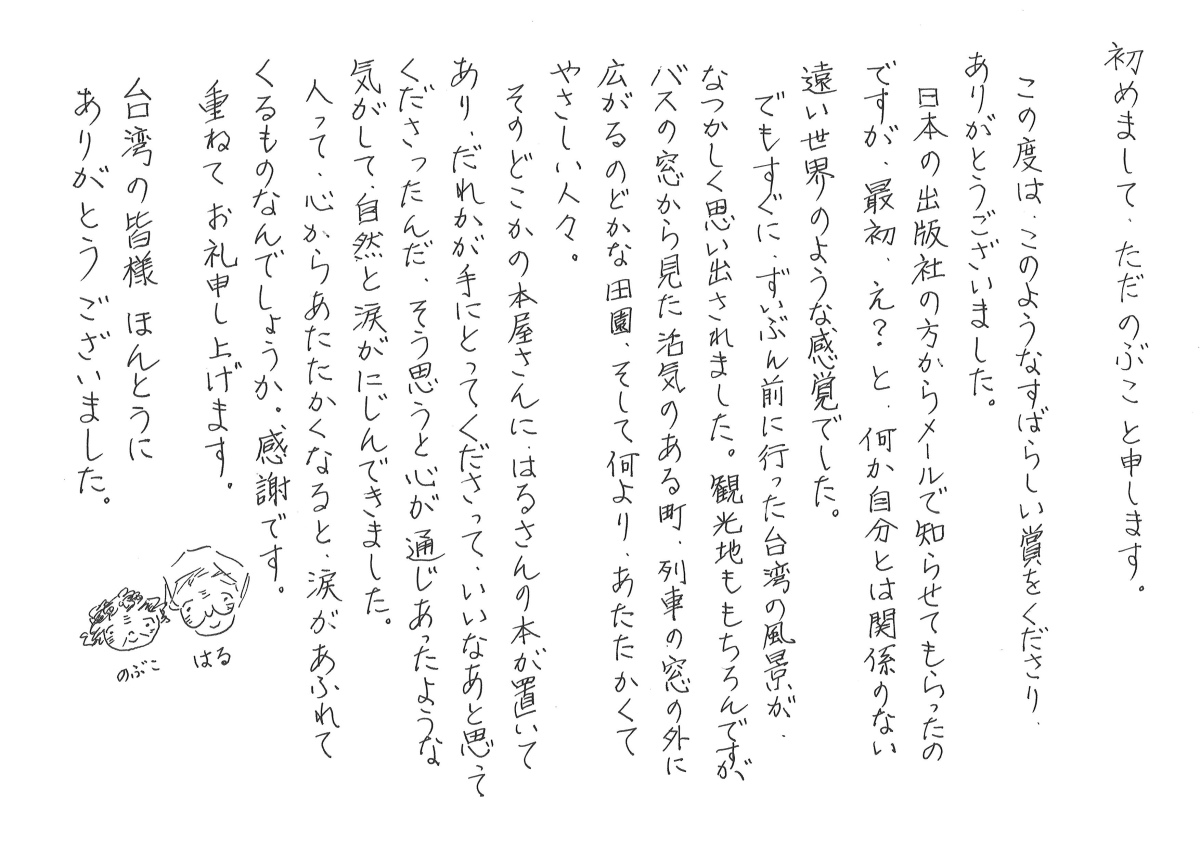 初めまして、ただのぶこと申します。
この度は、このようなすばらしい賞をくださり、
ありがとうございました。
日本の出版社の方からメールで知らせてもらったの
ですが、最初、え？と、何か自分とは関係のない
遠い世界のような感覚でした。
でもすぐに、ずいぶん前に行った台湾の風景が、
なつかしく思い出されました。観光地ももちろんですが
バスの窓から見た活気のある町、列車の窓の外に
広がるのどかな田園、そして何より、あたたかくて
やさしい人々。
そのどこかの本屋さんに、はるさんの本が置いて
あり、だれかが手にとってくださって、いいなあと思って
くださったんだ、そう思うと心が通じあったような
気がして、自然と涙がにじんできました。
人って、心からあたたかくなると、涙があふれて
くるものなんでしょうか。感謝です。
重ねてお礼申し上げます。
台湾の皆様 ほんとうに
ありがとうございました。
はる
のぶこ